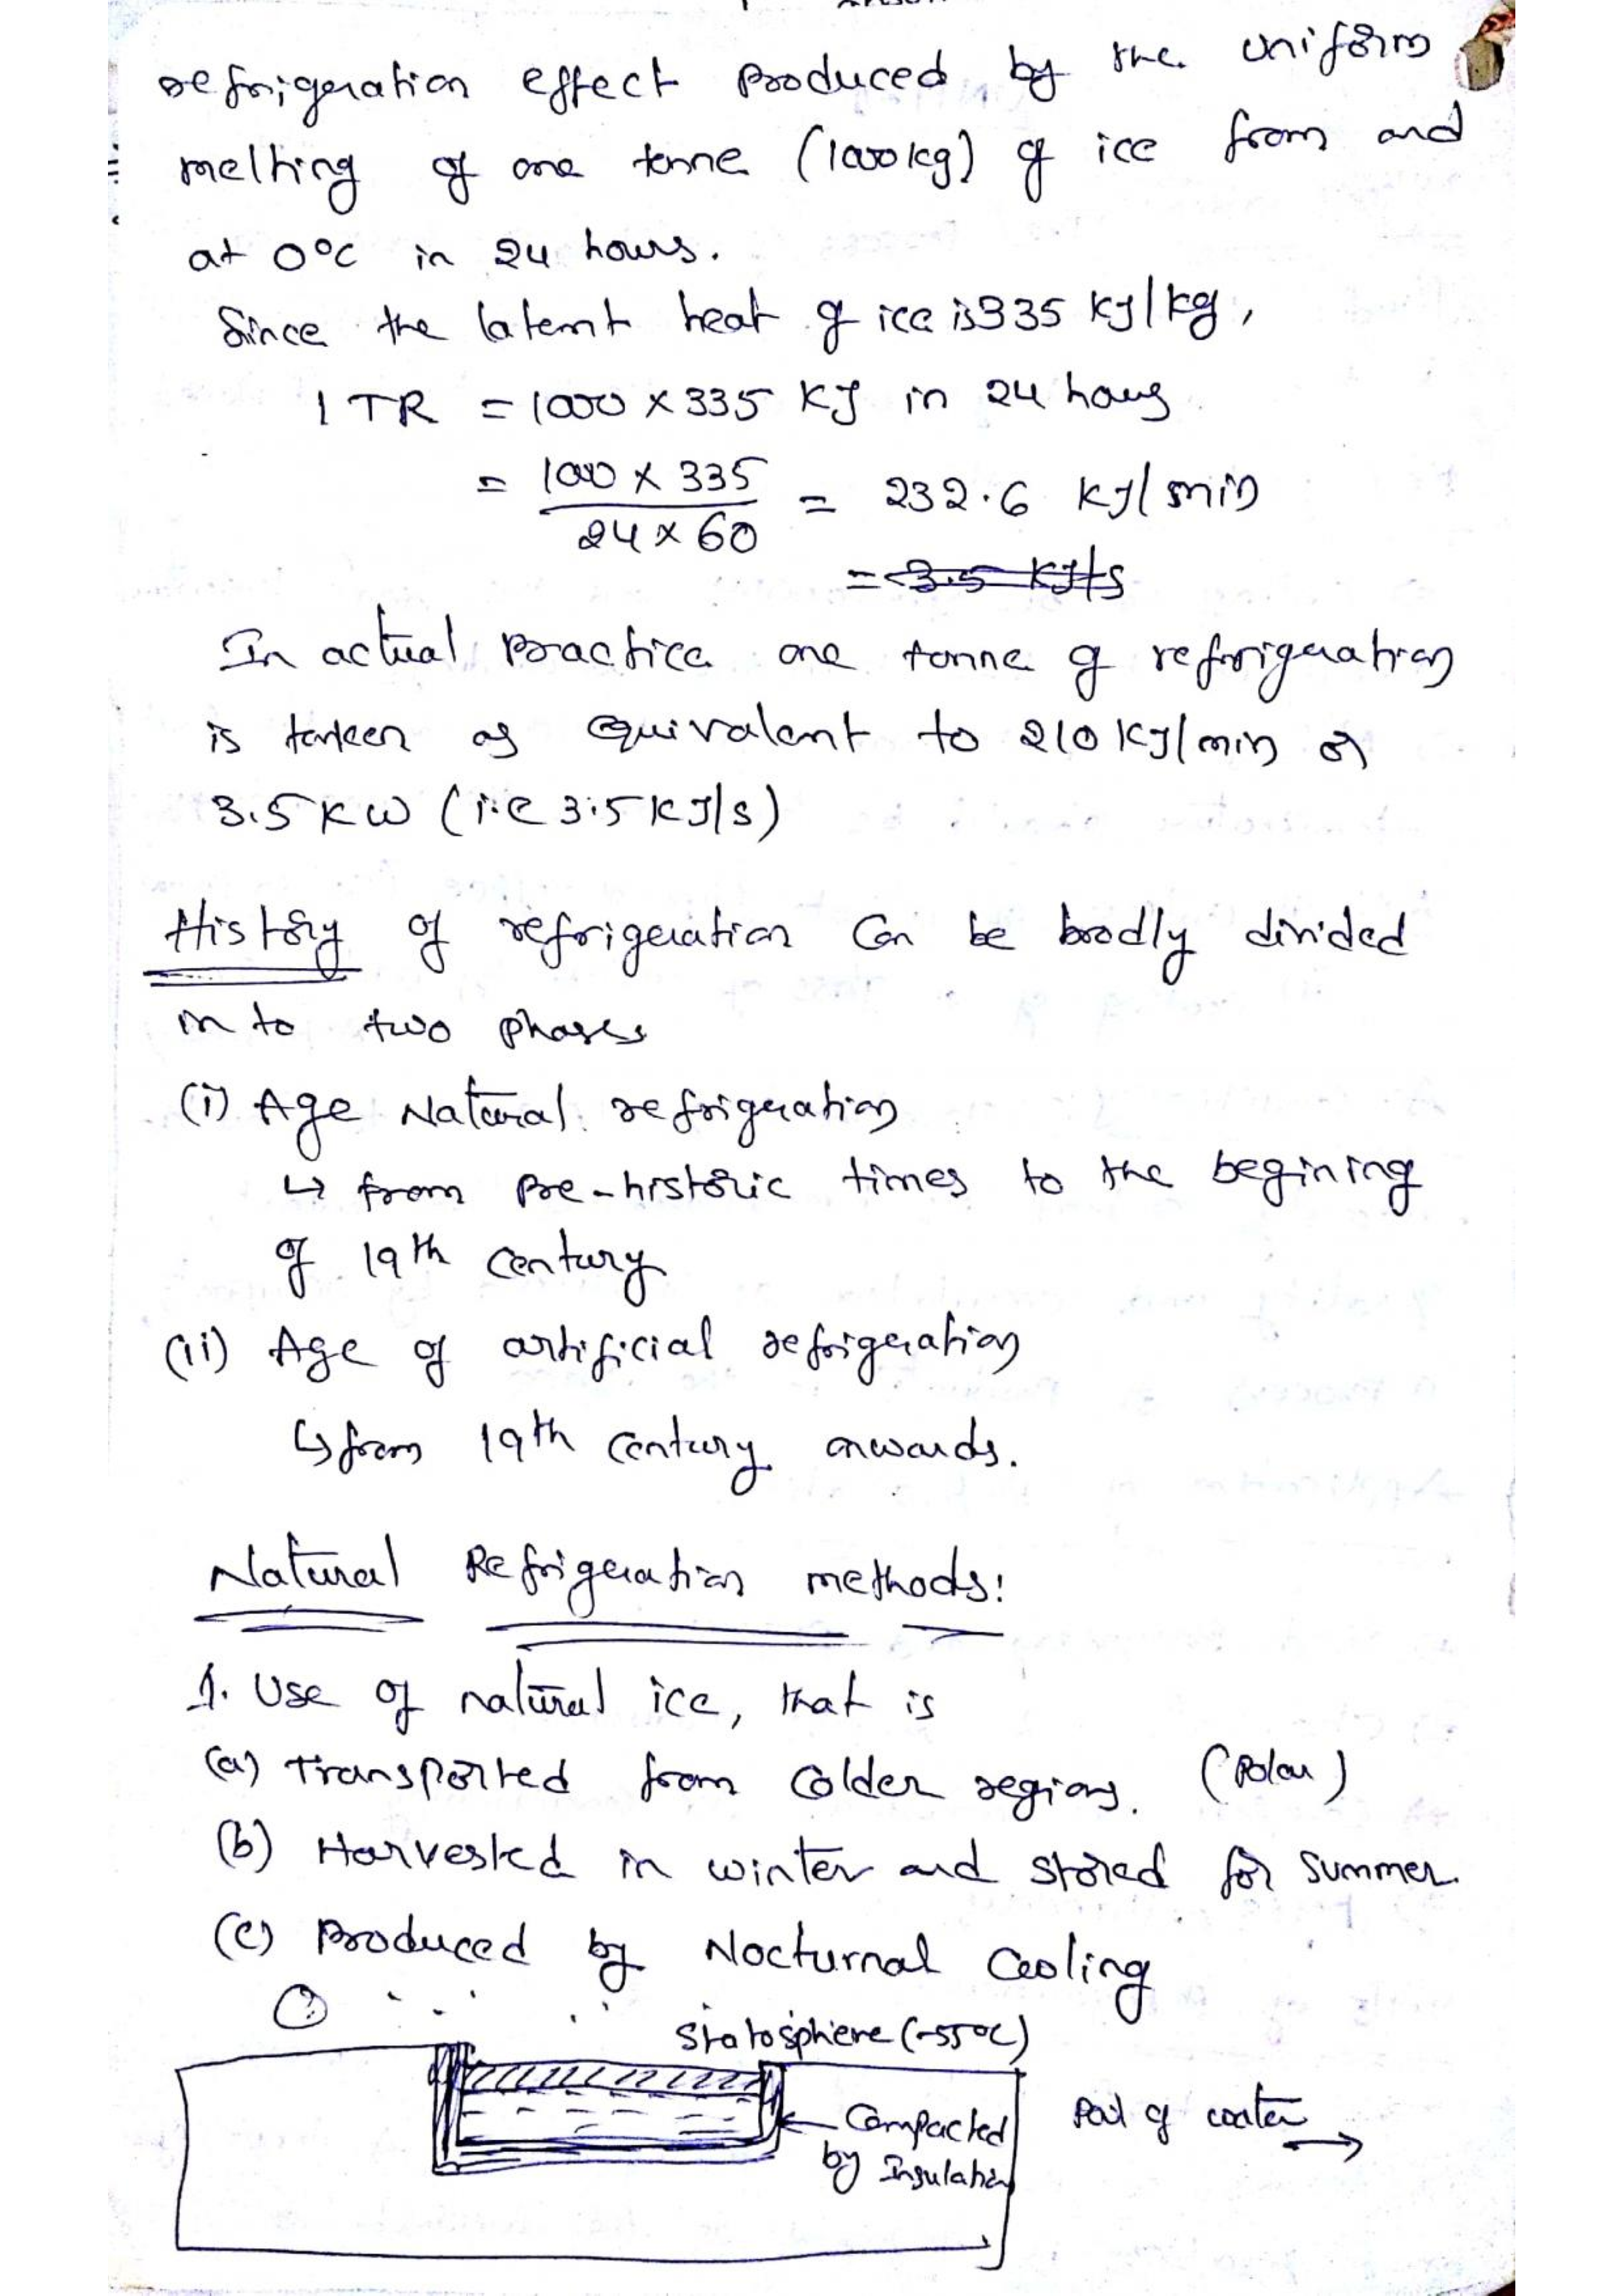 refrigeration effect produced by the uniform
melting of one tonne (1000kg) of ice from and
at 0°C in 24 hours.
Since the latent heat of ice is 335 KJ/kg,
1 TR = 1000 x 335 KJ in 24 hours
= 1000 x 335 / 24 x 60 = 232.6 KJ/min
= 3.5 KJ/s
In actual practice one tonne of refrigeration
is tanken as equivalent to 210 KJ/min or
3.5 KW (i.e 3.5 KJ/s)
History of refrigeration Can be brodly divided
in to two phases
(i) Age Natural refrigeration
↳ from Pre-historic times to the begining
of 19th century
(ii) Age of artificial refrigeration
↳ from 19th Century onwards.
Natural Refrigeration methods:
1. Use of natural ice, that is
(a) Transported from Colder regions. (Polar)
(b) Harvested in winter and stored for summer.
(c) Produced by Nocturnal Cooling
Statosphere (-55°C)
Compacted
by Insulation
of water →